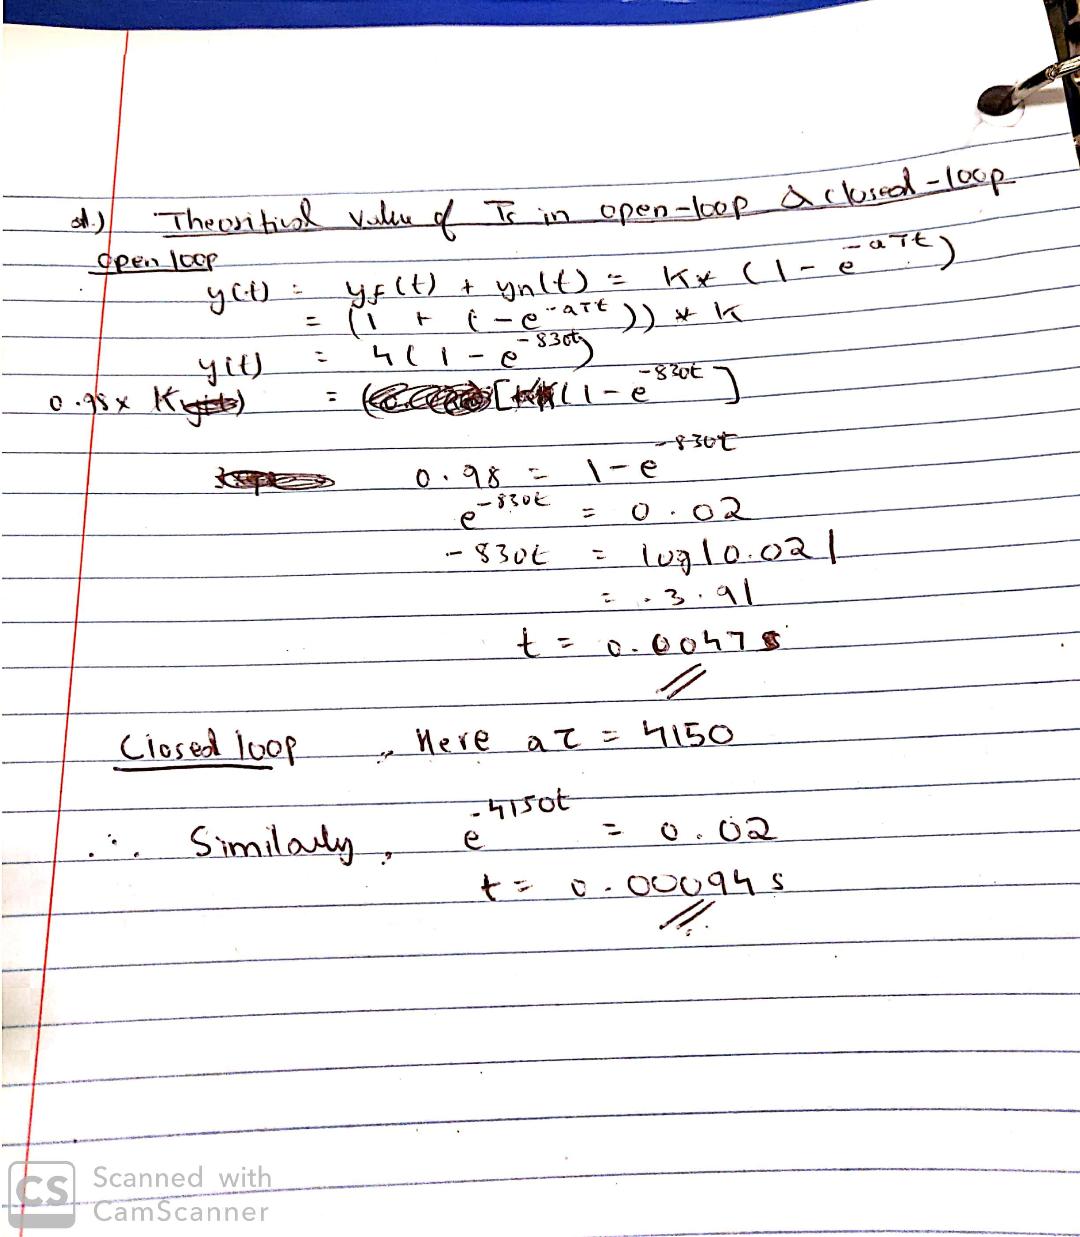 d.) Theoritical value of Ts in open-loop & closed-loop
Open loop
y(t) = yf(t) + yn(t) = K* (1 - e^-aτt)
= (1 + (-e^-aτt)) * K
y(t) = 4(1 - e^-830t)
0.98 x K = [(1 - e^-830t]
0.98 = 1 - e^-830t
e^-830t = 0.02
-830t = log|0.02|
= -3.91
t = 0.0047 s
Closed loop , Here aτ = 4150
∴ Similarly, e^-4150t = 0.02
t = 0.00094 s
CS Scanned with
CamScanner